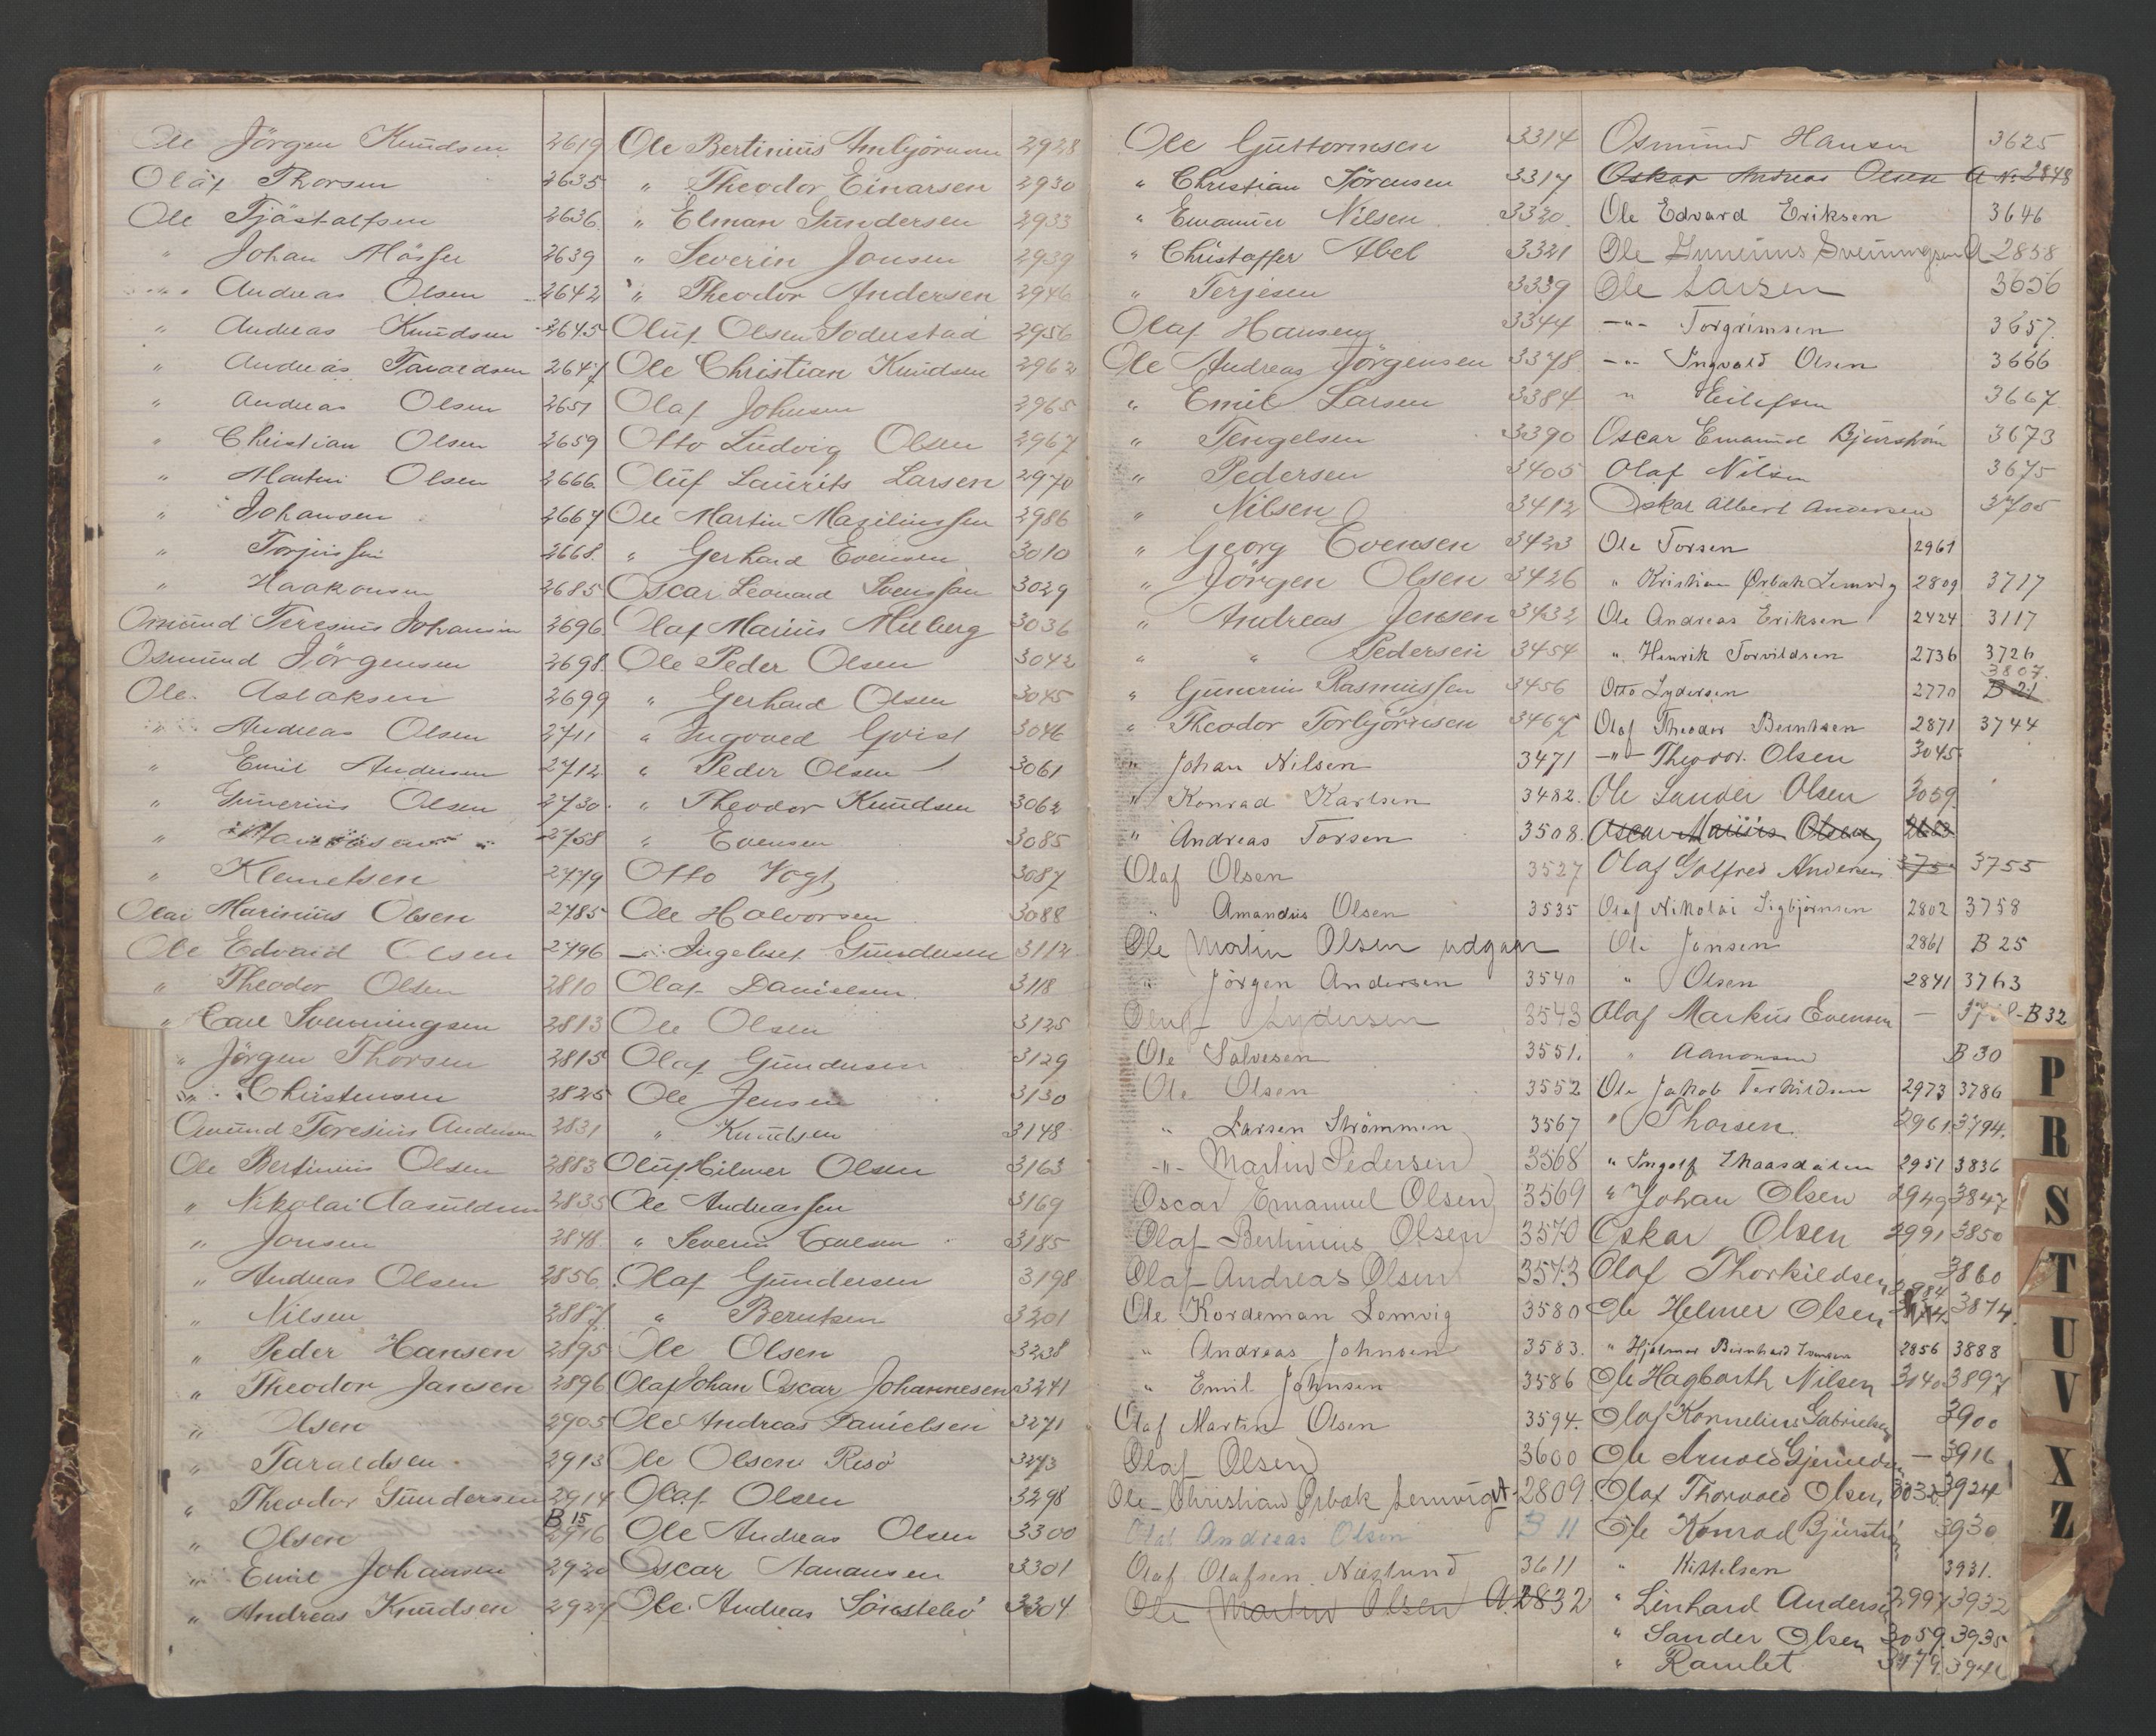 Ole Jörgen Knudsen 2619
Olaf Thorsen 2635
Ole Tjöstolfsen 2636
" Johan Mösser 2639
" Andreas Olsen 2642
" Andreas Knudsen 2645
" Andreas Taraldsen 2647
" Andreas Olsen 2651
" Christian Olsen 2659
" Martin Olsen 2666
" Johansen 2667
" Torjussen 2668
" Haakonsen 2685
Omund Teresius Johansen 2696
Osmund Jörgensen 2698
Ole Aslaksen 2699
" Andreas Olsen 2711
" Emil Andersen 2712
" Gunerius Olsen 2730
" 2758
" Klemetsen 2779
Olai Marinius Olsen 2785
Ole Edvard Olsen 2796
" Theodor Olsen 2810
" Carl Svenningsen 2813
" Jörgen Thorsen 2815
" Christensen 2825
Omund Toresius Andersen 2831
Ole Bertinius Olsen 2883
" Nikolai Aasuldsen 2835
" Jonsen 2848
" Andreas Olsen 2856
" Nilsen 2887
" Peder Hansen 2895
" Theodor Jansen 2896
" Olsen 2905
" Taraldsen 2913
" Theodor Gundersen 2914
" Olsen B 15 2916
" Emil Johansen 2920
" Andreas Knudsen 2927
Ole Bertinius Anbjörnsen 2928
" Theodor Einarsen 2930
" Elman Gundersen 2933
" Severin Jonsen 2939
" Theodor Andersen 2946
Oluf Olsen Soderstad 2956
Ole Christian Knudsen 2962
Olaf Johnsen 2965
Otto Ludvig Olsen 2967
Oluf Laurits Larsen 2970
Ole Martin Mazilinssen 2986
" Gerhard Evensen 3010
Oscar Leonard Svenssen 3029
Olaf Marius Milberg 3036
Ole Peder Olsen 3042
" Gerhard Olsen 3045
" Ingvoed Qvist 3046
" Peder Olsen 3061
" Theodor Knudsen 3062
" Evensen 3085
Otto Vogt 3087
Ole Halvorsen 3088
" Ingebret Gundersen 3112
Olaf Danielsen 3118
Ole Olsen 3125
Olaf Gundersen 3129
Ole Jensen 3130
" Knudsen 3148
Oluf Hilmer Olsen 3163
Ole Andreassen 3169
" Severin Evensen 3185
Olaf Gundersen 3198
" Berntsen 3201
Ole Olsen 3238
Olaf Johan Oscar Johannesen 3241
Ole Andreas Danielsen 3271
Ole Olsen Risö 3273
Olaf Olsen 3298
Ole Andreas Olsen 3300
Oscar Aanansen 3301
Ole Andreas Sörestebö 3304
Ole Guttormsen 3314
" Christian Sörensen 3317
" Emanuel Nilsen 3320
" Christoffer Abel 3321
" Terjesen 3339
Olaf Hansen 3344
Ole Andreas Jörgensen 3378
" Emil Larsen 3384
" Tengelsen 3390
" Pedersen 3405
" Nilsen 3412
" Georg Evensen 3423
" Jörgen Olsen 3426
" Andreas Jensen 3432
" " Pedersen 3454
" Gunerius Rasmussen 3456
" Theodor Torbjörnsen 3467
" Johan Nilsen 3471
" Konrad Karlsen 3482
" Andreas Torsen 3508
Olaf Olsen 3527
" Amandus Olsen 3535
Ole Martin Olsen udgaar
" Jörgen Andersen 3540
Oluf Lydersen 3543
Ole Salvesen 3551
Ole Olsen 3552
" Larsen Strömmen 3567
-"- Martin Pedersen 3568
Oscar Emanuel Olsen 3569
Olaf Bertinius Olsen 3570
Olaf Andreas Olsen 3573
Ole Kordeman Lomvig 3580
" Andreas Johnsen 3583
" Emil Johnsen 3586
Olaf Martin Olsen 3594
Olaf Olsen 3600
Ole Christian Örbæk Lemvigt 2809
Olaf Andreas Olsen B 11
Olaf Olafsen Næslund 3611
Ole Martin Olsen A 2832
Osmund Hansen 3625
Oskar Andreas Olsen A No 2848
Ole Edvard Eriksen 3646
Ole Gunerius Sveinungsen A 2858
Ole Larsen 3656
-"- Torgrimsen 3657
-"- Ingvald Olsen 3666
" Eilefsen 3667
Oscar Emanuel Bjurström 3673
Olaf Nilsen 3675
Oskar Albert Andersen 3705
Ole Torsen 2961
" Kristian Ørbæk Lemvig 2809 3717
Ole Andreas Eriksen 2424 3117
" Henrik Torvildsen 2736 3726
Otto Lydersen 2770 3807 B 21
Olaf Theodor Berntsen 2871 3744
-"- Theodor Olsen 3045
Ole Sander Olsen 3059
Oscar Marius Olsen
Olaf Gotfred Andersen 3755
Olaf Nikolai Sigbjörnsen 2802 3758
Ole Jansen 2861 B 25
" Olsen 2841 3763
Olaf Markus Evensen — B 32
" Aanonsen B 30
Ole Jakob Terkildsen 2973 3786
" Thorsen 2961 3794
" Ingolf Thaasdalen 2951 3836
" Johan Olsen 2949 3847
Oskar Olsen 2991 3850
Olaf Thorkildsen 3860
Ole Helmer Olsen 2984 3874
" Hjalmar Bernhard 2856 3888
Ole Hagbarth Nilsen 3040 3897
Olaf Kornelius Gabrielsen 3900
Ole Arnold Gjerulds — 3916
Olaf Thorvald Olsen 3032 3924
Ole Konrad Bjurström 3930
" Kittelsen 3931
" Linhard Andersen 2997 3932
" Sander Olsen 3059 3935
" Ramlet 3179 3946
P
R
S
T
U
V
X
Z